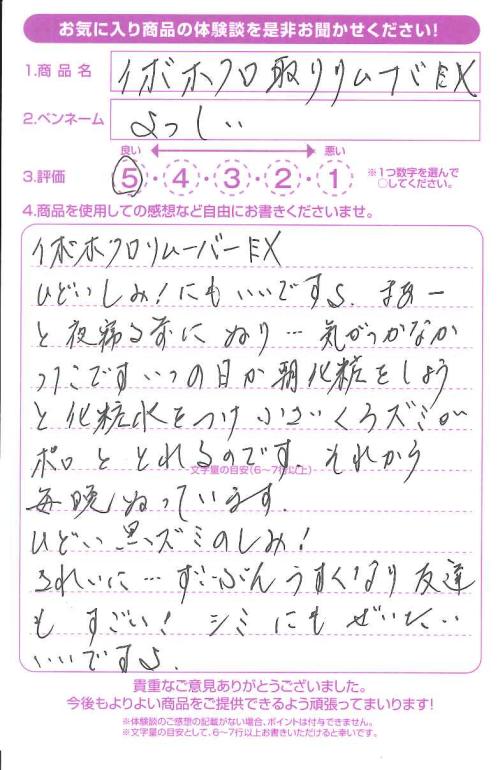 お気に入り商品の体験談を是非お聞かせください!
1.商品名 イボホクロ取りリムーバEX
2.ペンネーム よっしい
良い 悪い
3.評価 5・4・3・2・1 ※1つ数字を選んで
○してください。
4.商品を使用しての感想など自由にお書きくださいませ。
イボホクロリムーバーEX
ひどいしみ!にもいいですよ。まあー
と夜寝る前にぬり…気がつかなか
ったですいつの日か朝化粧をしよう
と化粧水をつけ小さいくろズミが
ポロととれるのです。それから
文字量の目安(6~7行以上)
毎晩ぬっています。
ひどい黒ズミのしみ!
きれいに…ずいぶんうすくなり友達
も すごい! シミにもぜいたい
いいですよ。
貴重なご意見ありがとうございました。
今後もよりよい商品をご提供できるよう頑張ってまいります!
※体験談のご感想の記載がない場合、ポイントは付与できません。
※文字量の目安として、6~7行以上お書きいただけると幸いです。